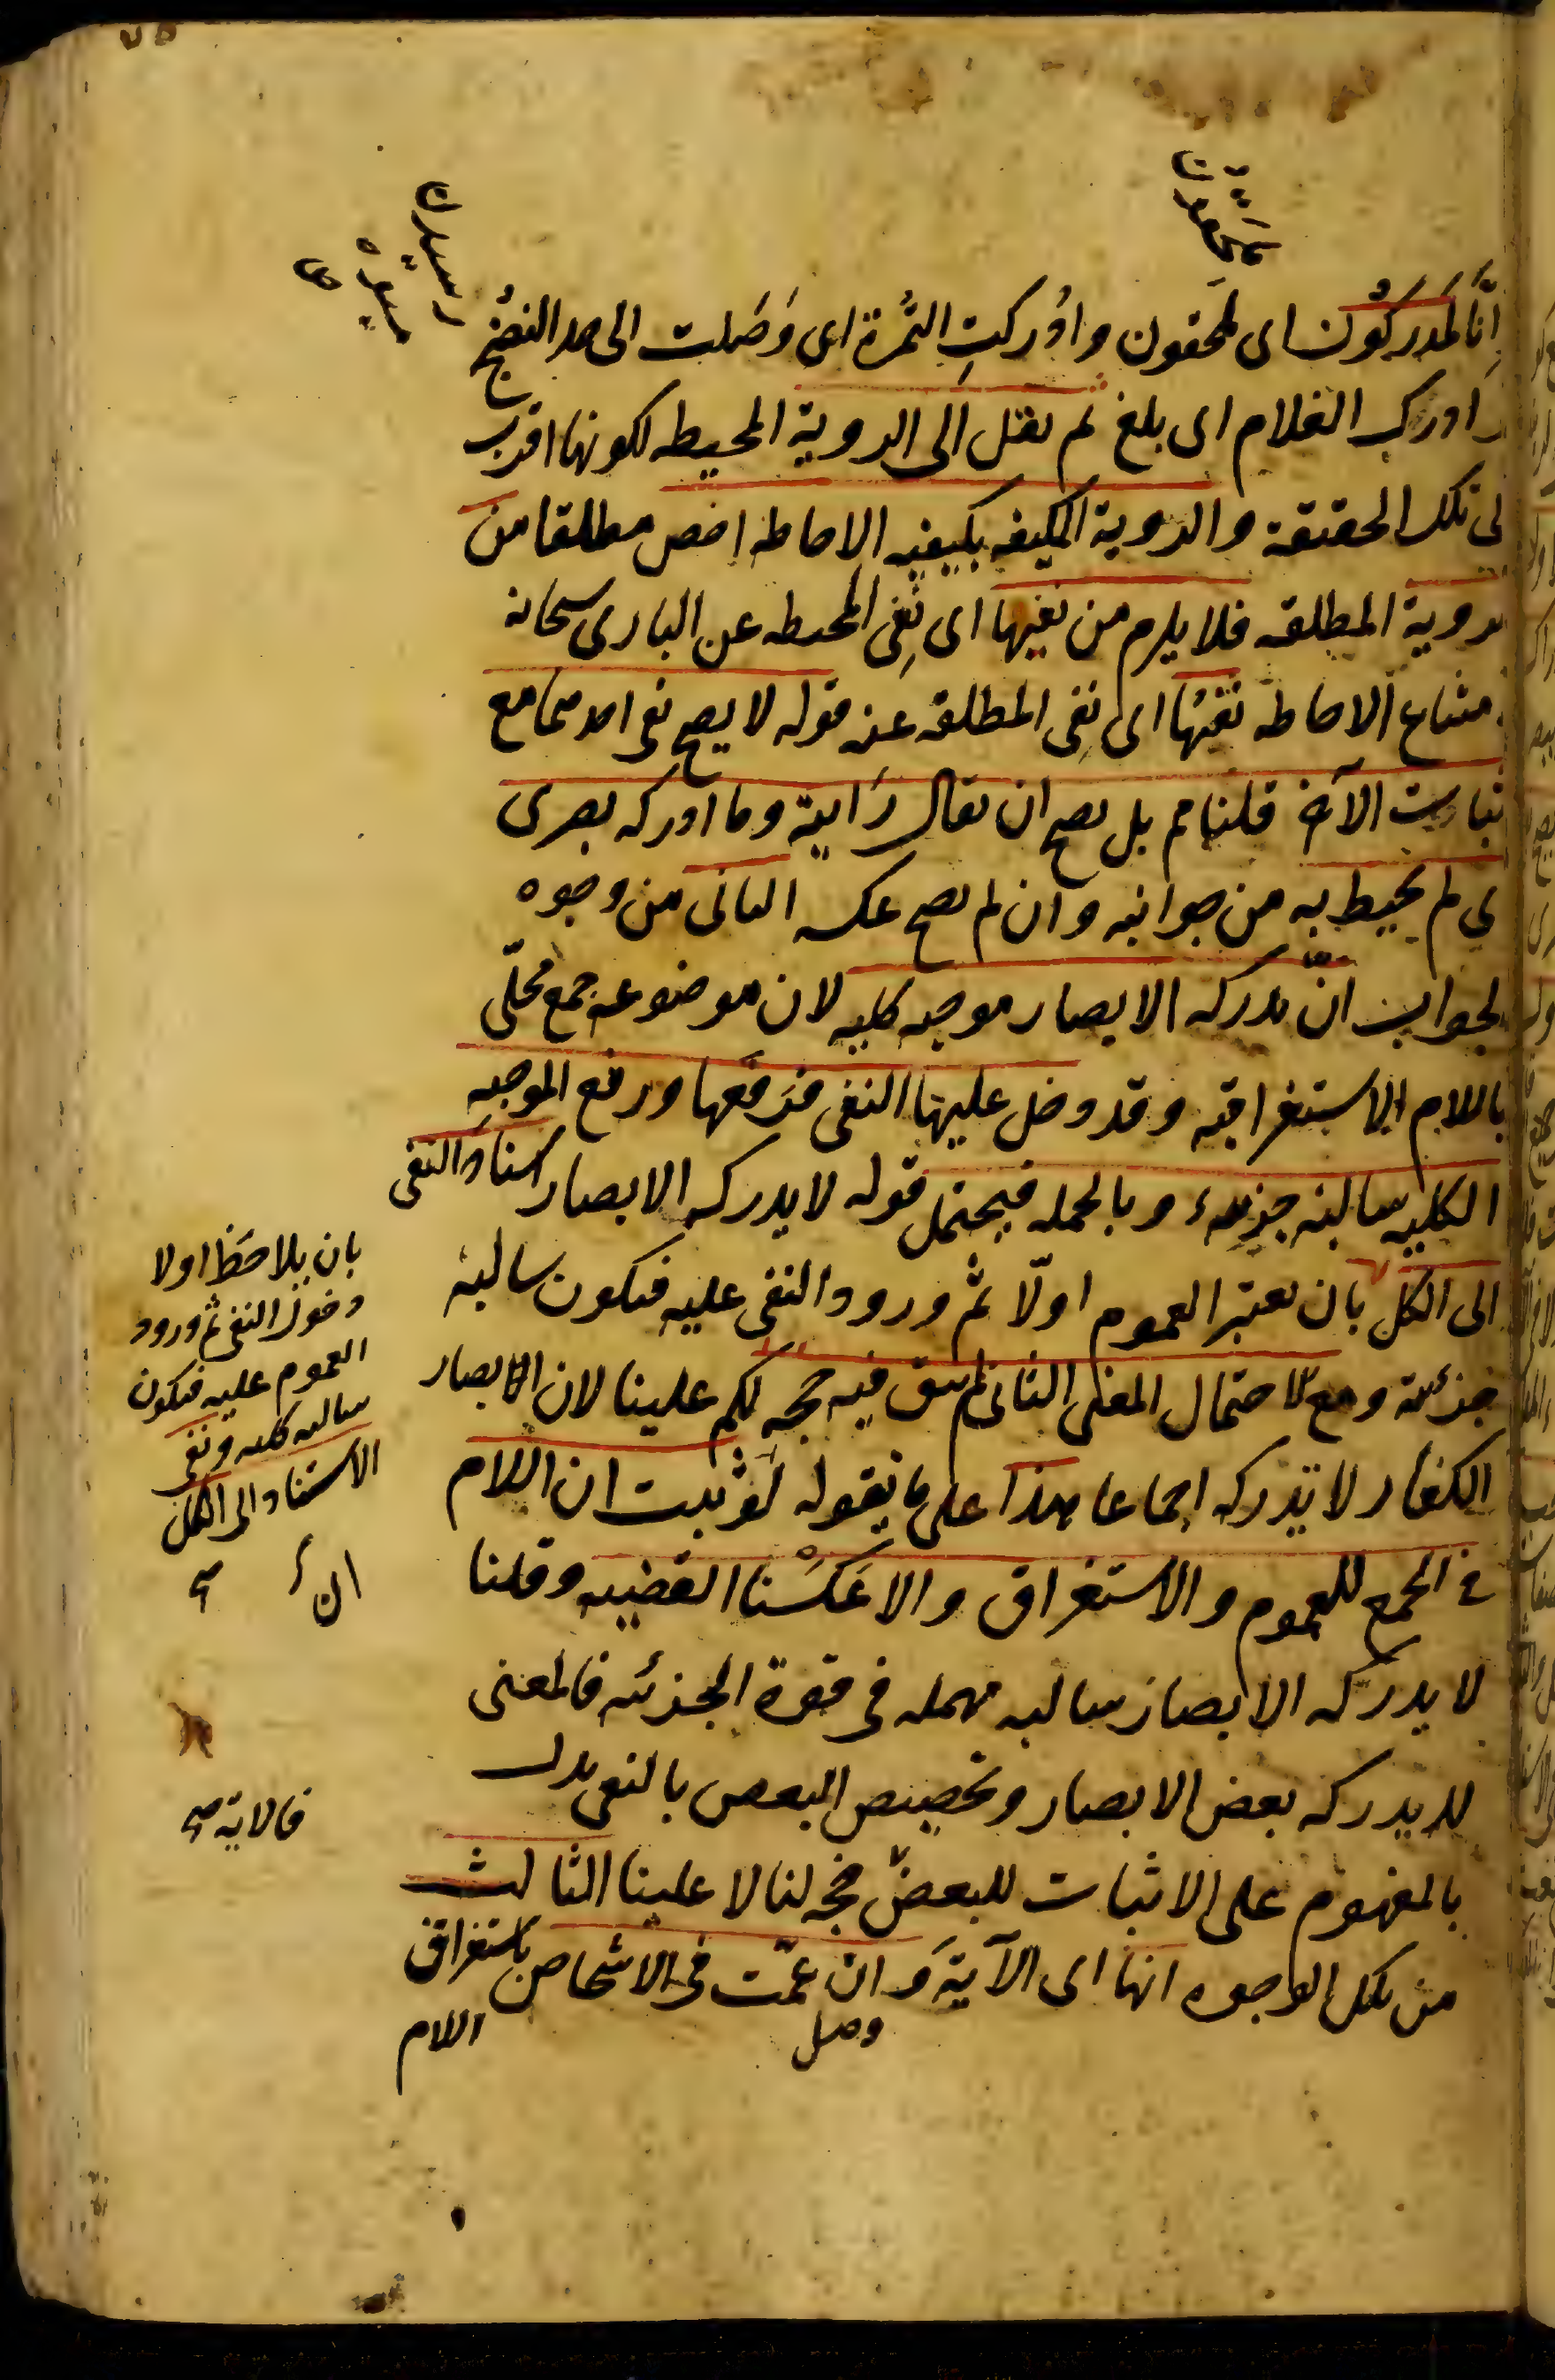 لمحقون
رسیدن
میوه
انا لمدركون اى لمحقون و ادركت الثمرة اى وصلت الى حد النضج
و ادرك الغلام اى بلغ ثم نقل الى الروية المحيطه لكونها اقرب
لى تلك الحقيقة والروية المكيفه بكيفيه الاحاطه اخص مطلقا من
لروية المطلقه فلا يلزم من نفيها اى نفى المحيطه عن البارى سبحانه
متناع الاحاطه نفيها اى نفى المطلقه عنه قوله لا يصح نفى احدهما مع
ثبات الآخر قلنا مم بل يصح ان يقال رايته وما ادركه بصرى
ى لم يحيط به من جوانبه وان لم يصح عكسه الثانى من وجوه
لجواب ان تدركه الابصار موجبه كليه لان موضوعه جمع محلى
باللام الاستغراقيه وقد دخل عليها النفى فرفعها ورفع الموجبه
الكليه سالبه جزئيه وبالجمله فيحتمل قوله لا يدركه الابصار اسناد النفى
الى الكل بان يعتبر العموم اولا ثم ورود النفى عليه فيكون سالبه
جزئيه ومع احتمال المعنى الثانى لم يبق فيه حجه لكم علينا لان ابصار
الكفار لا تدركه اجماعا هذا على ما نقوله لو ثبت ان اللام
فى الجمع للعموم والاستغراق والا عكسنا القضيه وقلنا
لا يدركه الابصار سالبه مهمله فى قوة الجزئيه فالمعنى
لا يدركه بعض الابصار وتخصيص البعض بالنفى يدل
بالمفهوم على الاثبات للبعض فحجه لنا لا علينا الثالث
من تلك الوجوه انها اى الآية وان عمت فى الاشخاص باستغراق
وصل
اللام
بان يلاحظ اولا
دخول النفى ثم ورود
العموم عليه فيكون
سالبه كليه ونفى
الاسناد الى الكل
فالاية صح